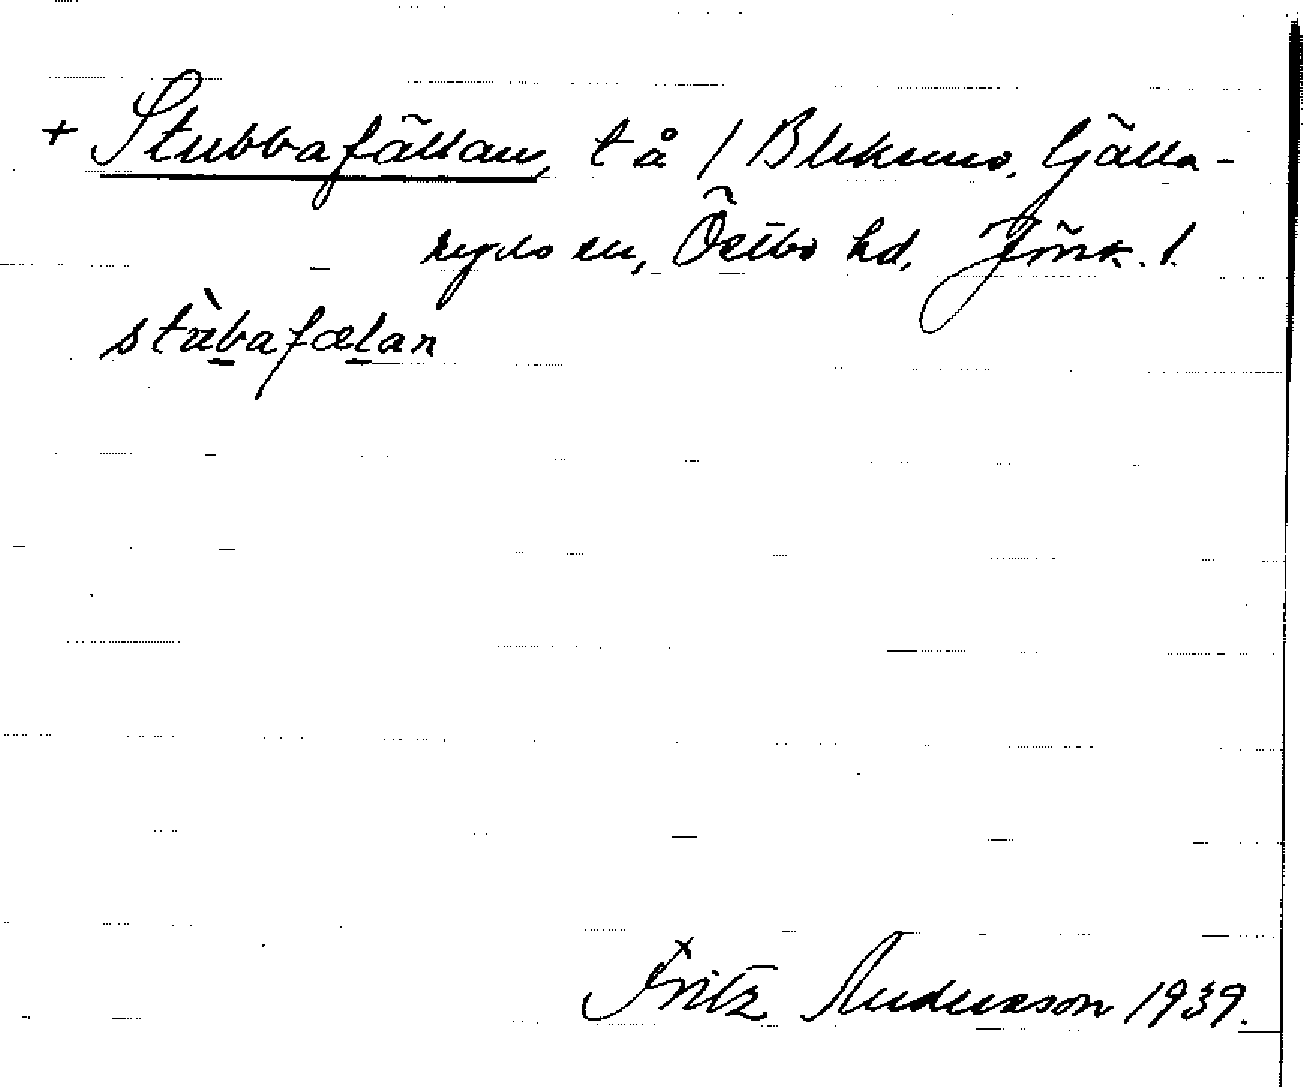 + Stubbafällan, t å / Blekemo, Gälla-
ryds sn, Östbo hd, Jönk. l.
stùbafælan
Fritz Andersson 1939.